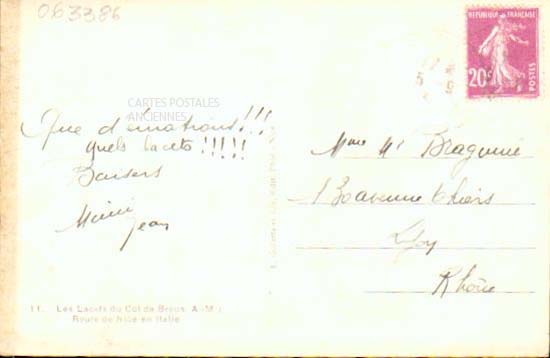 063386
REPUBLIQUE FRANÇAISE
20c
POSTES
CARTES POSTALES
ANCIENNES
Que d'émotions!!!
quels lacets!!!!!
Baisers
Mimi
Jean
Mme
avenue Thiers
Rhône
11. Les Lacets du Col de Braus (A.-M.)
Route de Nice en Italie